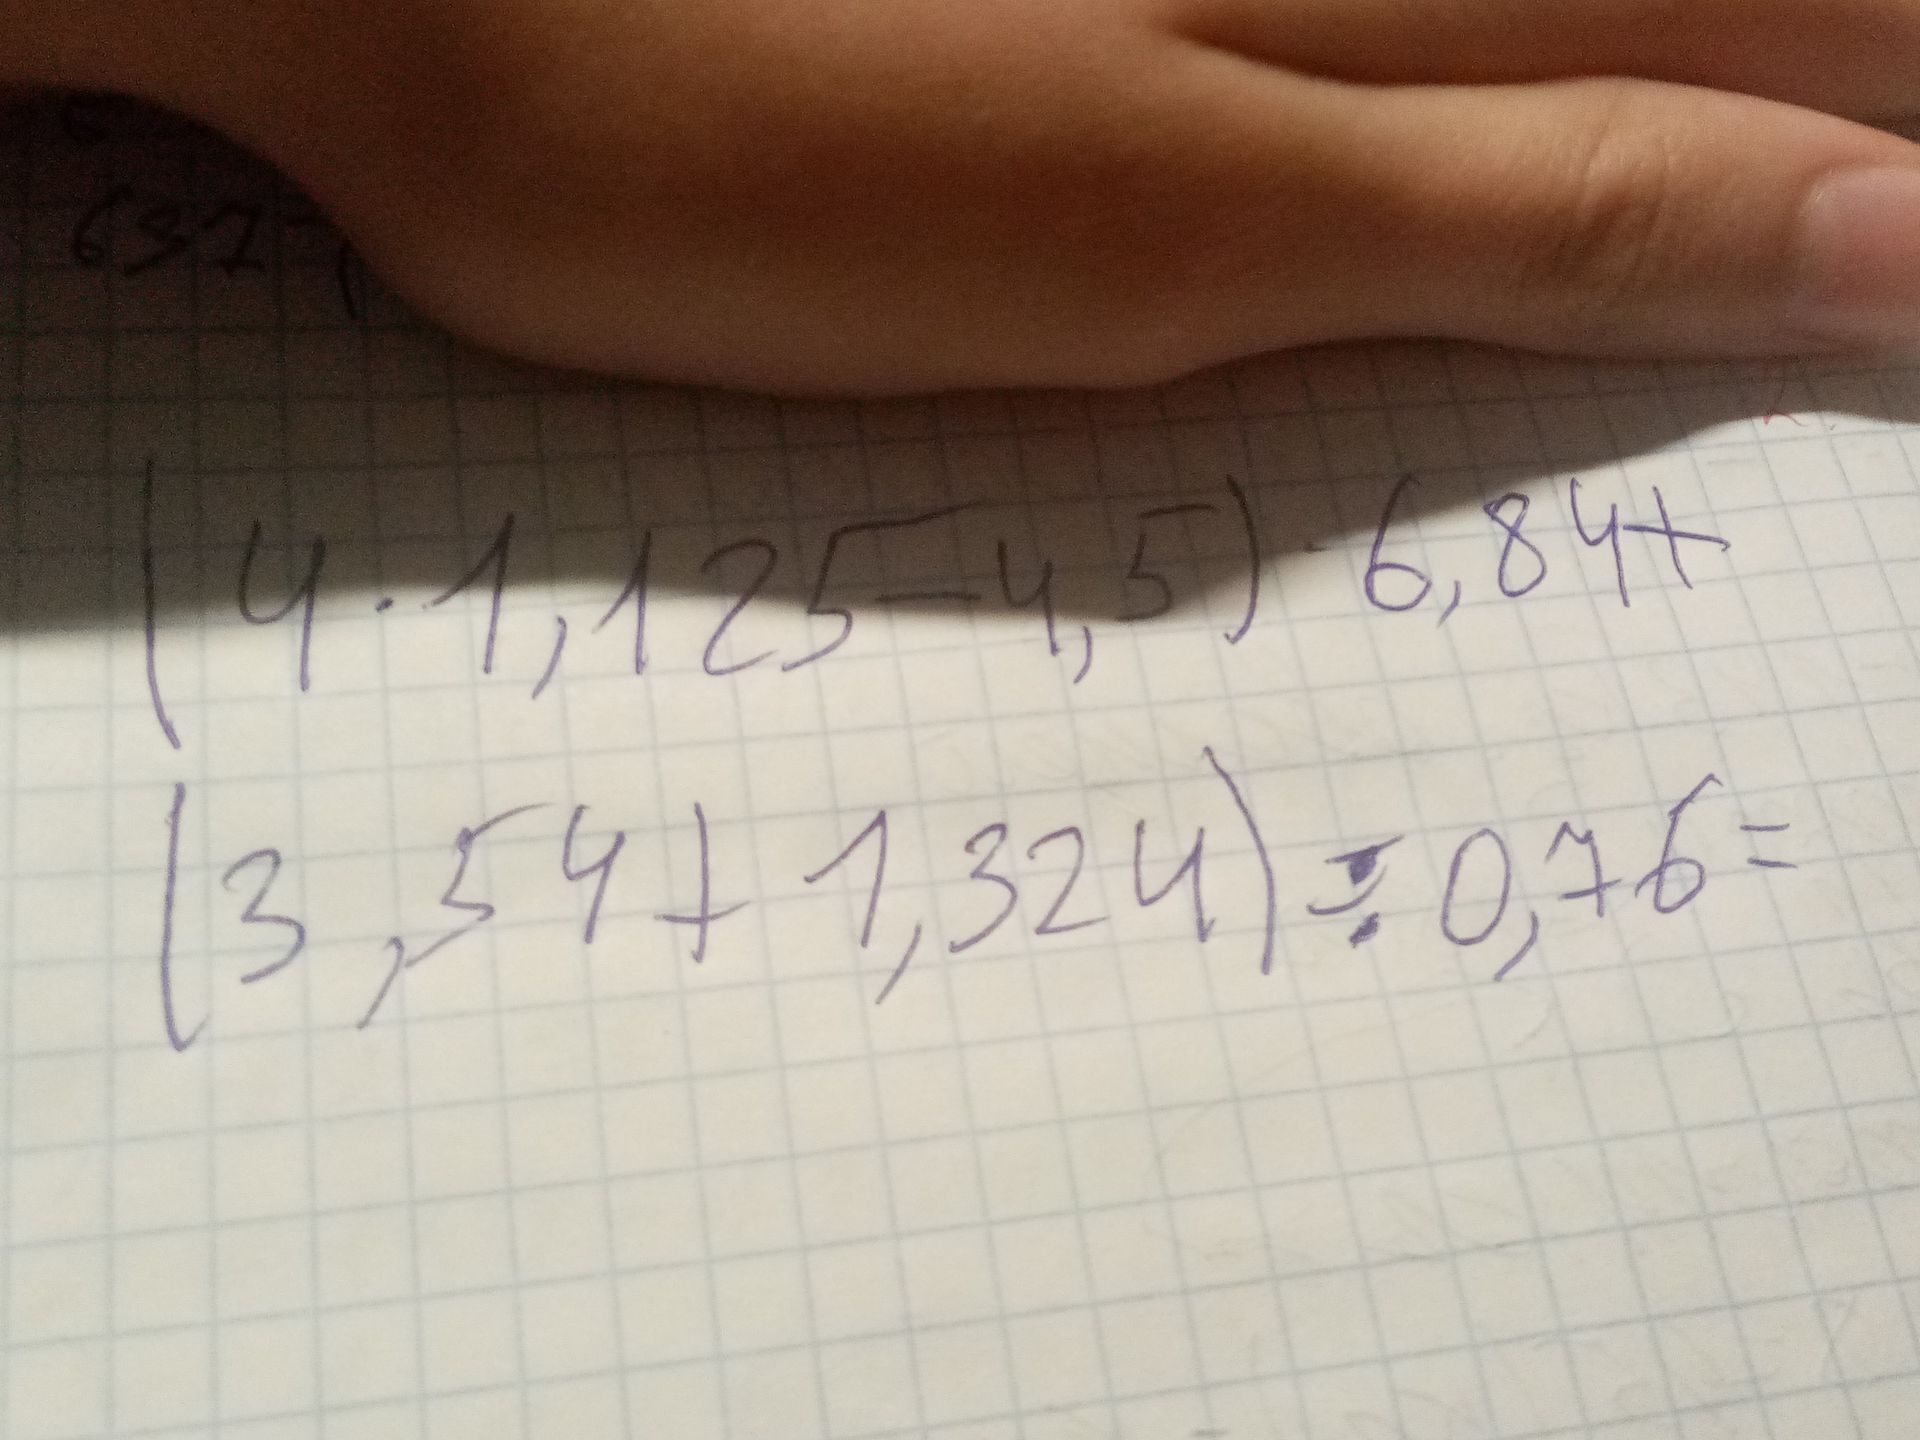 637-
(4·1,125-4,5)·6,84+
(3,54+1,324):0,76=